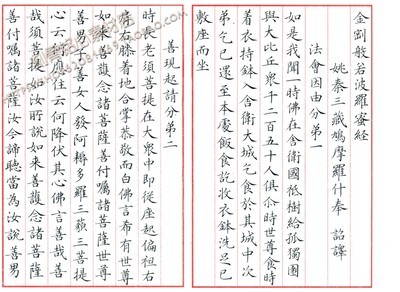 金剛般若波羅蜜經
姚秦三藏鳩摩羅什奉 詔譯
法會因由分第一
如是我聞一時佛在舍衛國祇樹給孤獨園
與大比丘眾千二百五十人俱尒時世尊食時
着衣持鉢入舍衛大城乞食於其城中次
弟乞已還至本處飯食訖收衣鉢洗足已
敷座而坐
善現起請分第二
時長老須菩提在大眾中即從座起偏袒右
肩右膝着地合掌恭敬而白佛言希有世尊
如來善護念諸菩薩善付囑諸菩薩世尊
善男子善女人發阿耨多羅三藐三菩提
心云何應住云何降伏其心佛言善哉善
哉須菩提如汝所說如來善護念諸菩薩
善付囑諸菩薩汝今諦聽當為汝說善男